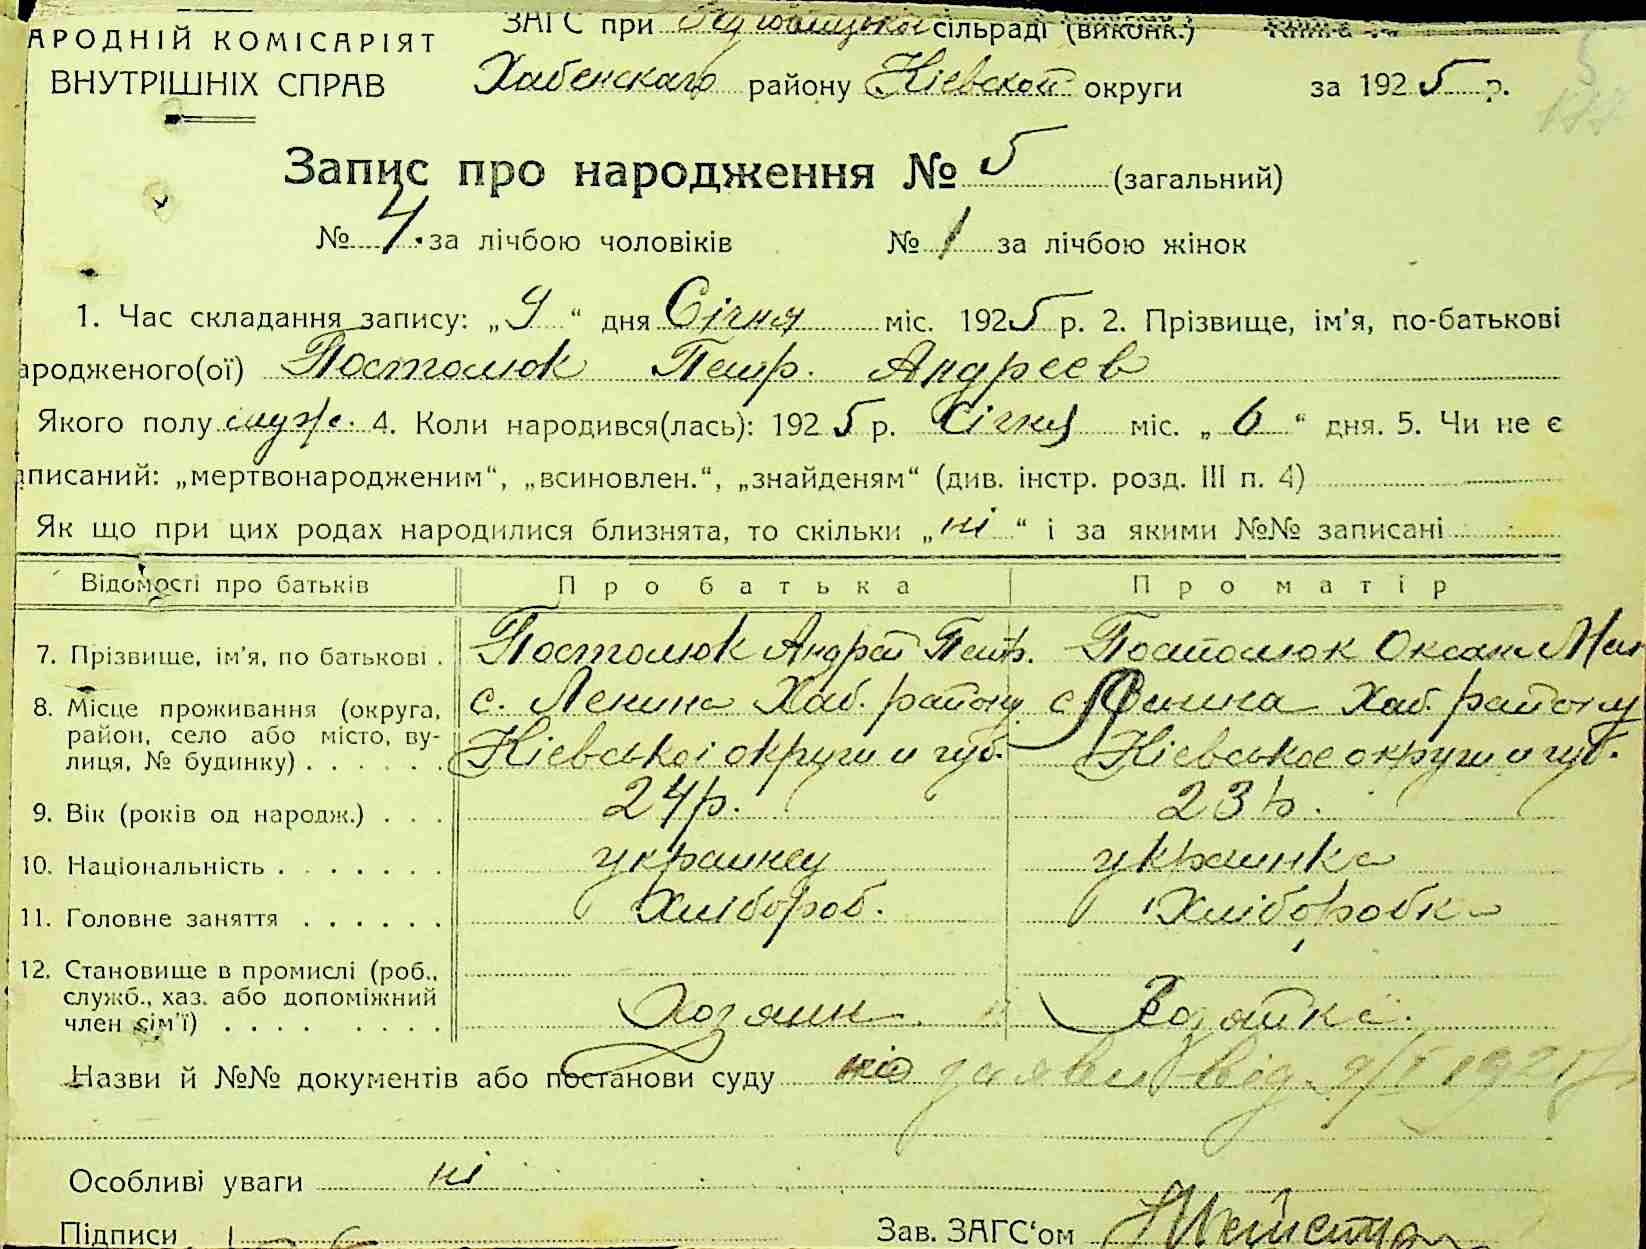 АРОДНІЙ КОМІСАРІЯТ
ВНУТРІШНІХ СПРАВ
ЗАГС при сільраді (виконк.)
Хабенскаго району Кіевской округи за 1925 р.
Запис про народження № 5 (загальний)
№ 4. за лічбою чоловіків № 1 за лічбою жінок
1. Час складання запису: „9“ дня Січня міс. 1925 р. 2. Прізвище, ім'я, по-батькові
ародженого(ої) Постолюк Петр. Андреев
Якого полу муж. 4. Коли народився(лась): 1925 р. Січня міс. „6“ дня. 5. Чи не є
аписаний: „мертвонародженим“, „всиновлен.“, „знайденям“ (див. інстр. розд. III п. 4)
Як що при цих родах народилися близнята, то скільки „ні“ і за якими №№ записані
Відомості про батьків Про батька Про матір
7. Прізвище, ім'я, по батькові . Постолюк Андрей Петр. Постолюк Оксана
8. Місце проживання (округа, с. Ленина Хаб. району с. Ленина Хаб. району
район, село або місто, ву- Кіевськоі округи и губ. Кіевськое округи и губ.
лиця, № будинку) . . . . . .
9. Вік (років од народж.) . . . 24 р. 23 р.
10. Національність . . . . . . . украинец украинка
11. Головне заняття . . . . . . Хлібороб. Хліборобка
12. Становище в промислі (роб.,
служб., хаз. або допоміжний
член сім'ї) . . . . . . . . . Хозяин Хозяйка.
Назви й №№ документів або постанови суду заяви від. 9/I 1925
Особливі уваги ні
Підписи Зав. ЗАГС'ом